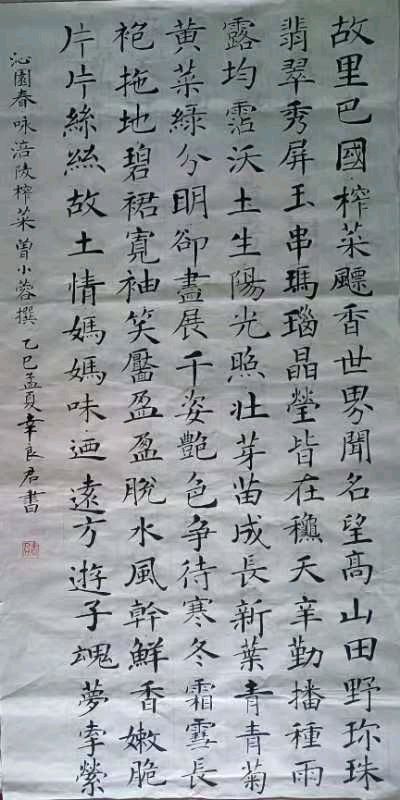 故里巴國榨菜飄香世界聞名望高山田野珎珠
翡翠秀屏玉串瑪瑙晶瑩皆在穐天辛勤播種雨
露均霑沃土生陽光照壯芽苗成長新葉青青菊
黄菜緑分明卻盡展千姿艷色争待寒冬霜雪長
袍拖地碧裙寬袖笑靨盈盈脫水風幹鮮香嫩脆
片片絲絲故土情媽媽味迺遠方遊子魂夢牽縈
沁園春咏涪陵榨菜曾小蓉撰乙巳孟夏幸良君書